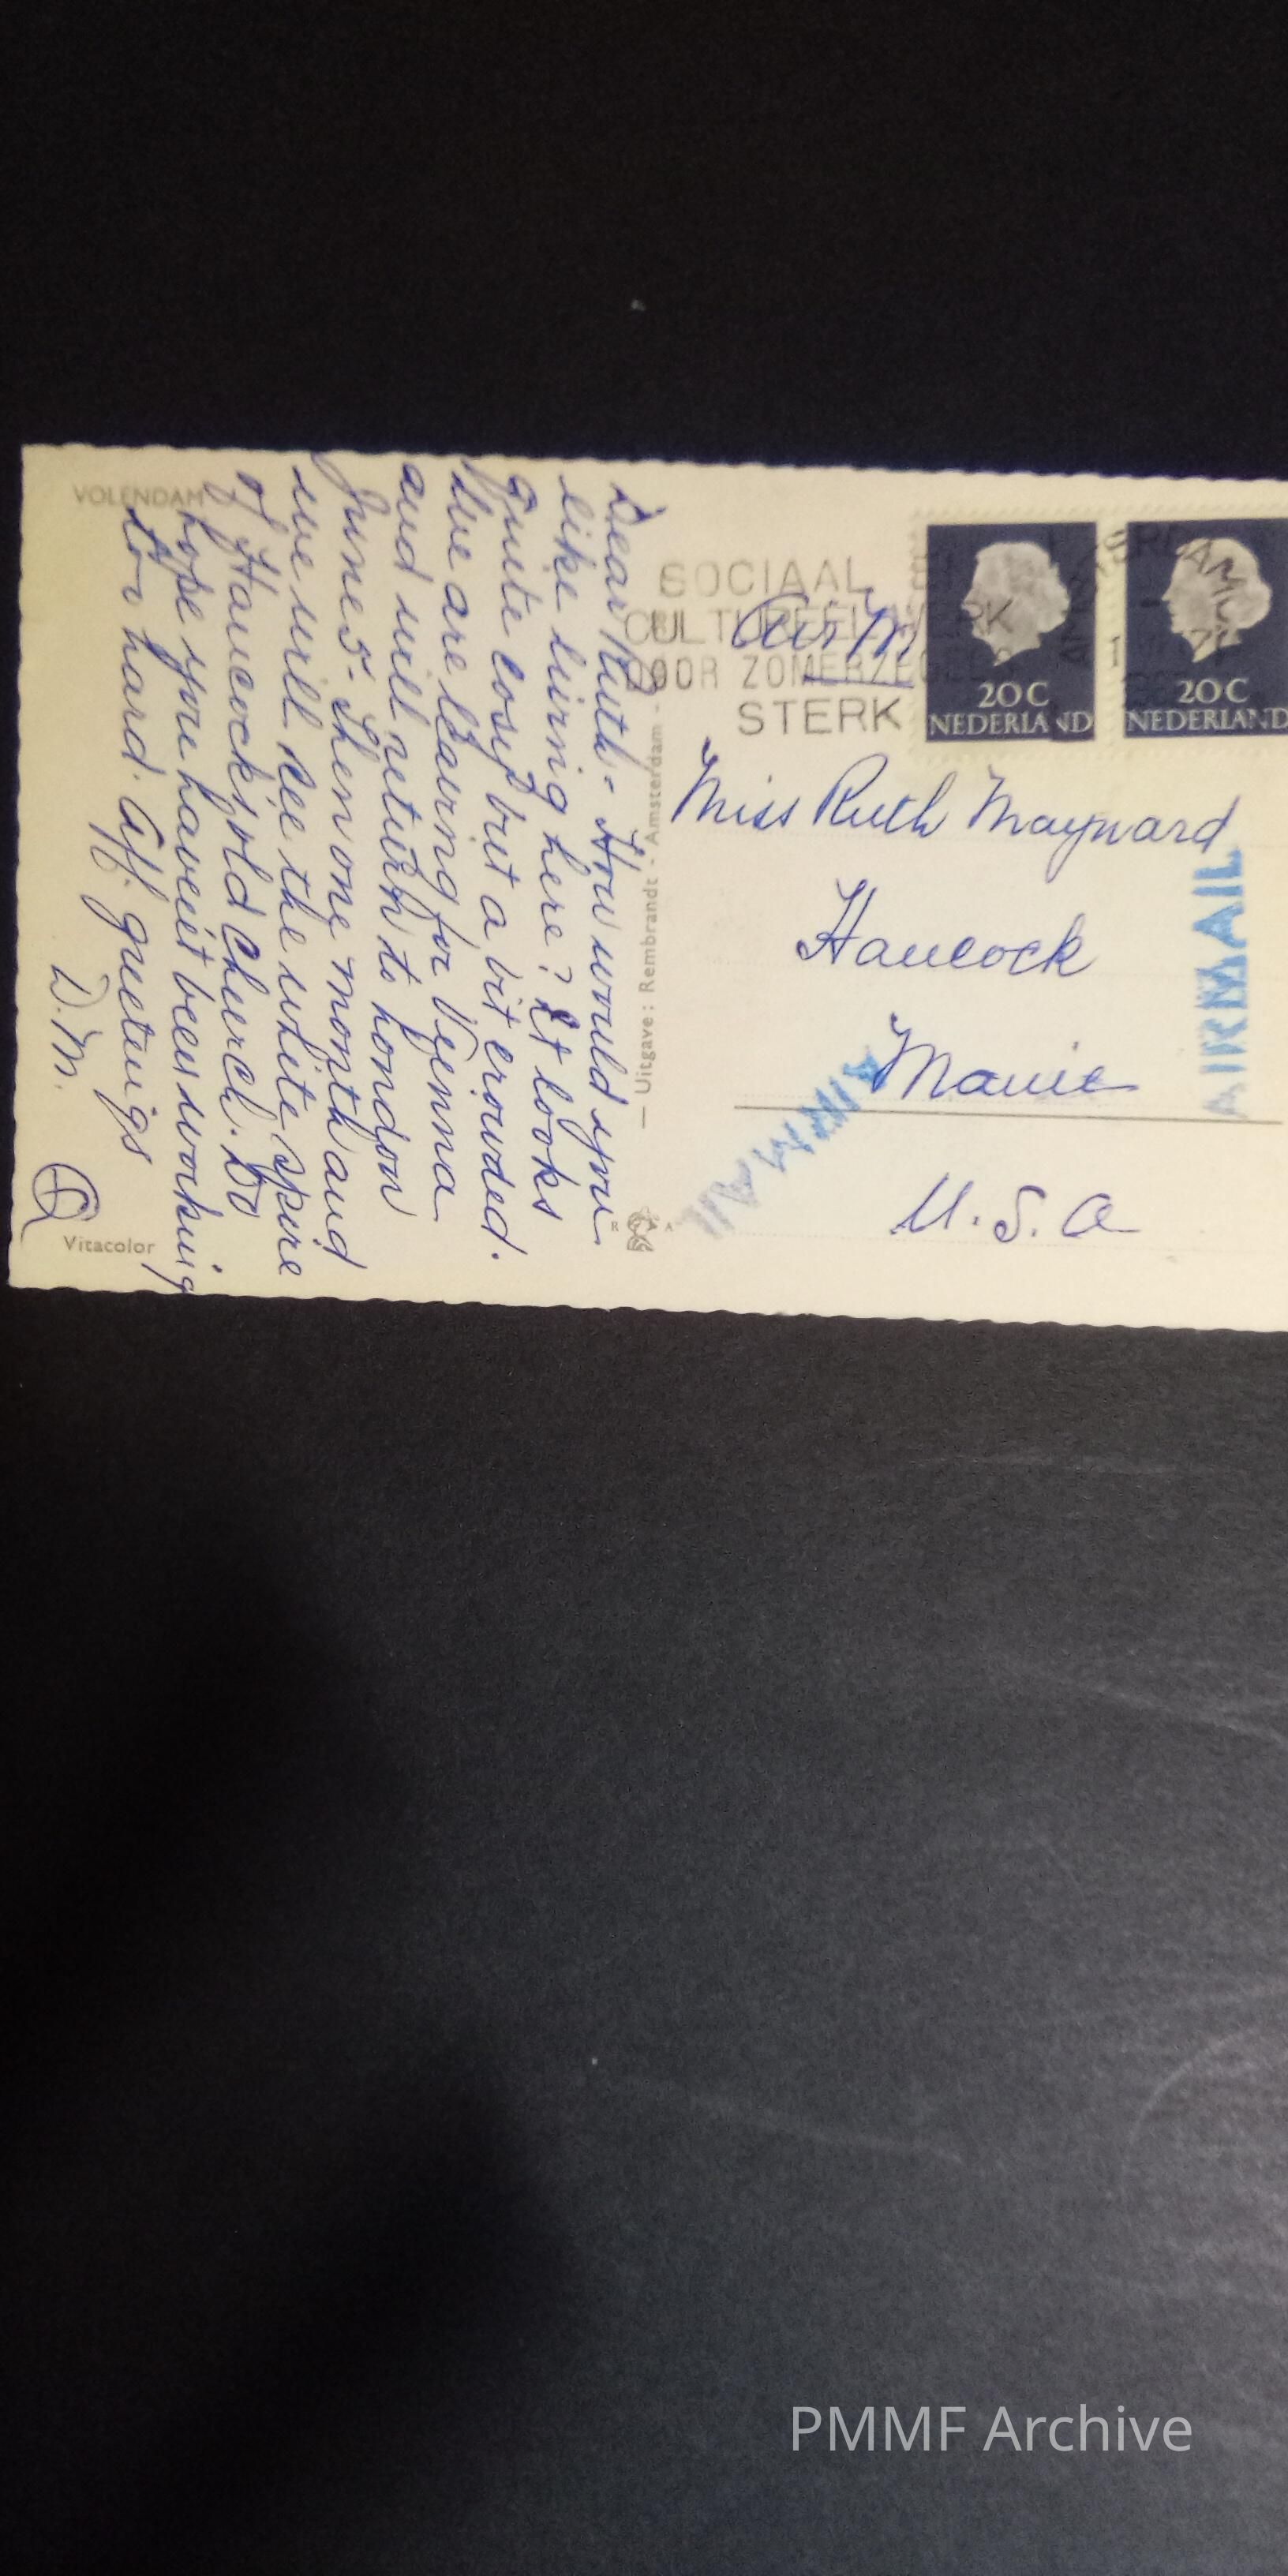 VOLENDAM
Dear Ruth - How would you
like living here? It looks
quite cosey but a bit crowded.
We are leaving for Vienna
and will return to London
June 5. Then one month and
we will see the white spire
of Hancock's old Church. Do
hope you haven't been working
too hard. Aff. greetings
D. M.
Vitacolor
— Uitgave: Rembrandt - Amsterdam -
R A
SOCIAAL
CULTUREEL WERK
DOOR ZOMERZEGELS
STERK
Air M
20 C
NEDERLAND
20 C
NEDERLAND
Miss Ruth Maynard
Hancock
Maine
U. S. A
AIRMAIL
AIRMAIL
PMMF Archive